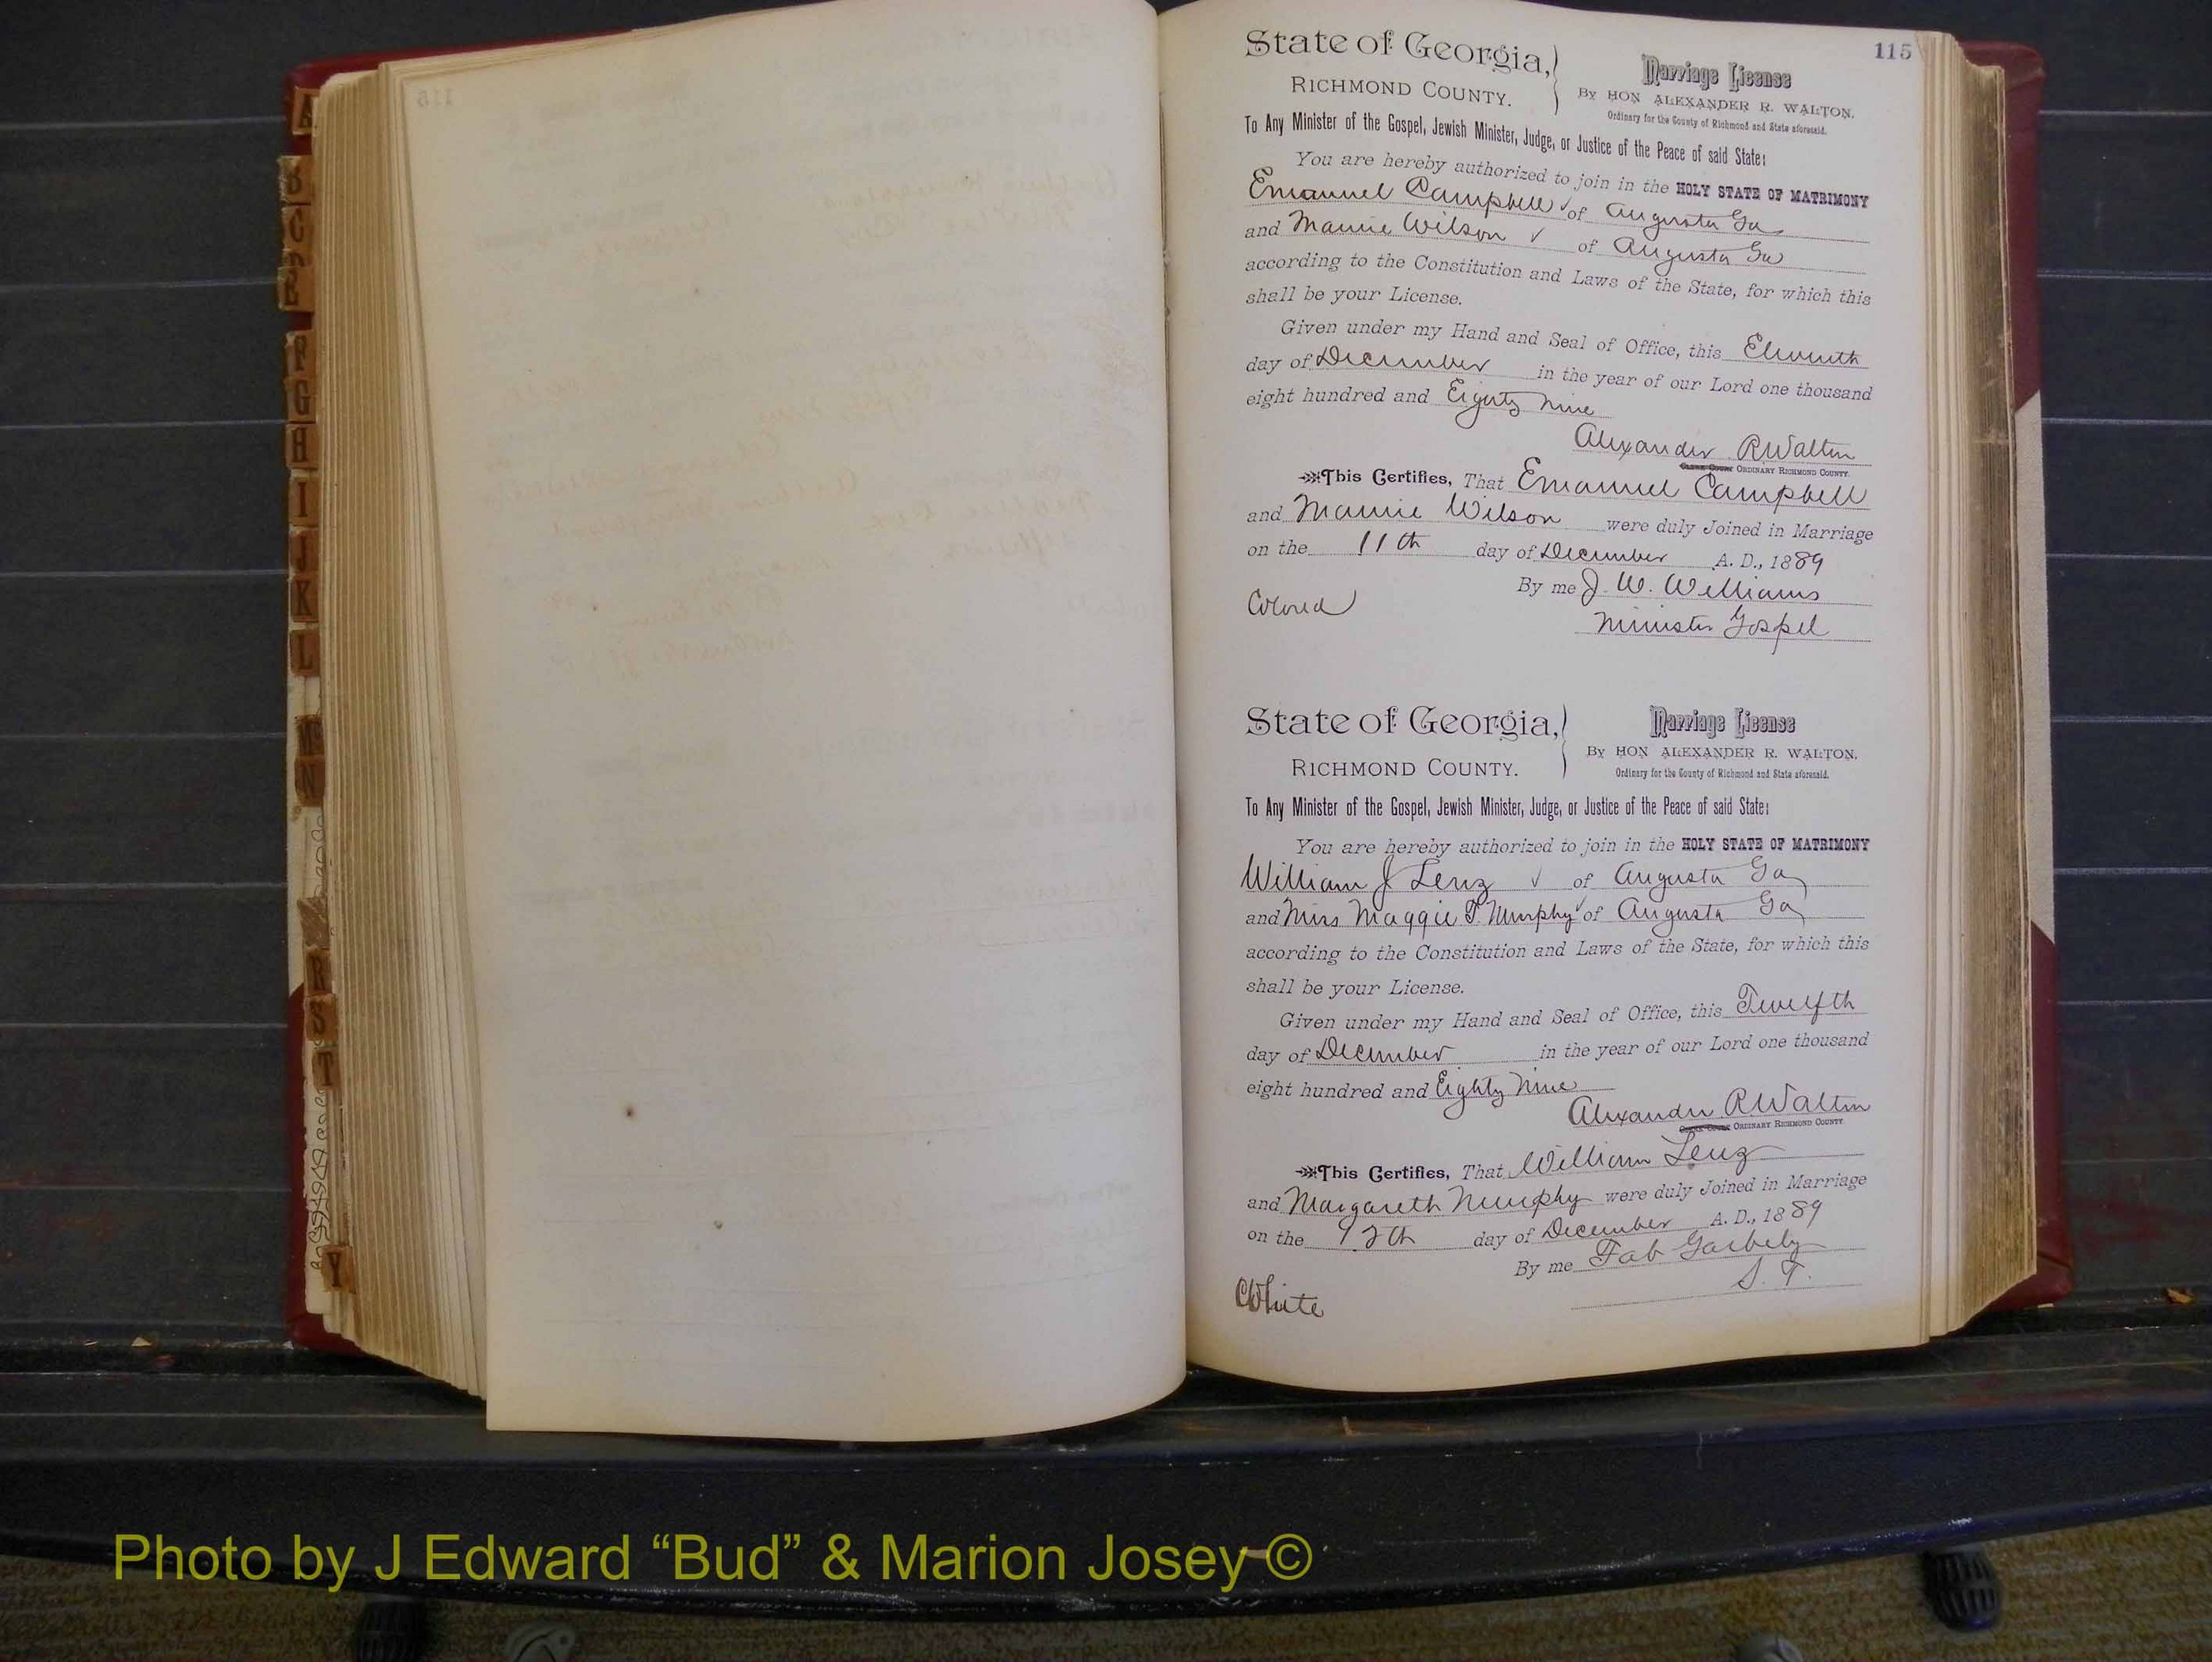 115
State of Georgia,
RICHMOND COUNTY.
Marriage License
By HON ALEXANDER R. WALTON.
Ordinary for the County of Richmond and State aforesaid.
To Any Minister of the Gospel, Jewish Minister, Judge, or Justice of the Peace of said State:
You are hereby authorized to join in the HOLY STATE OF MATRIMONY
Emanuel Campbell of Augusta Ga
and Mamie Wilson of Augusta Ga
according to the Constitution and Laws of the State, for which this
shall be your License.
Given under my Hand and Seal of Office, this Eleventh
day of December in the year of our Lord one thousand
eight hundred and Eighty Nine
Alexander R Walton
ORDINARY RICHMOND COUNTY.
This Certifies, That Emanuel Campbell
and Mamie Wilson were duly Joined in Marriage
on the 11th day of December A. D., 1889
By me J. W. Williams
Colored
Minister Gospel
State of Georgia,
RICHMOND COUNTY.
Marriage License
By HON ALEXANDER R. WALTON.
Ordinary for the County of Richmond and State aforesaid.
To Any Minister of the Gospel, Jewish Minister, Judge, or Justice of the Peace of said State:
You are hereby authorized to join in the HOLY STATE OF MATRIMONY
William J Lenz of Augusta Ga
and Miss Maggie T. Murphy of Augusta Ga
according to the Constitution and Laws of the State, for which this
shall be your License.
Given under my Hand and Seal of Office, this Twelfth
day of December in the year of our Lord one thousand
eight hundred and Eighty Nine
Alexander R Walton
ORDINARY RICHMOND COUNTY.
This Certifies, That William Lenz
and Margareth Murphy were duly Joined in Marriage
on the 12th day of December A. D., 1889
By me Fab
White
A
B
C
E
F
G
H
I
J
K
L
Mc
N
R
S
T
Y
Photo by J Edward “Bud” & Marion Josey ©